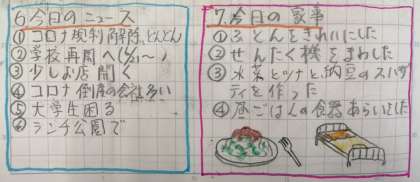 6.今日のニュース
①コロナ規制解除、どんどん
②学校再開へ(6/1〜)
③少しお店開く
④コロナ倒産の会社多い
⑤大学生困る
⑥ランチ公園で
7.今日の家事
①ふとんをきれいにした
②せんたく機をまわした
③水菜とツナと、納豆のスパゲ
ティを作った
④昼ごはんの食器あらいをした